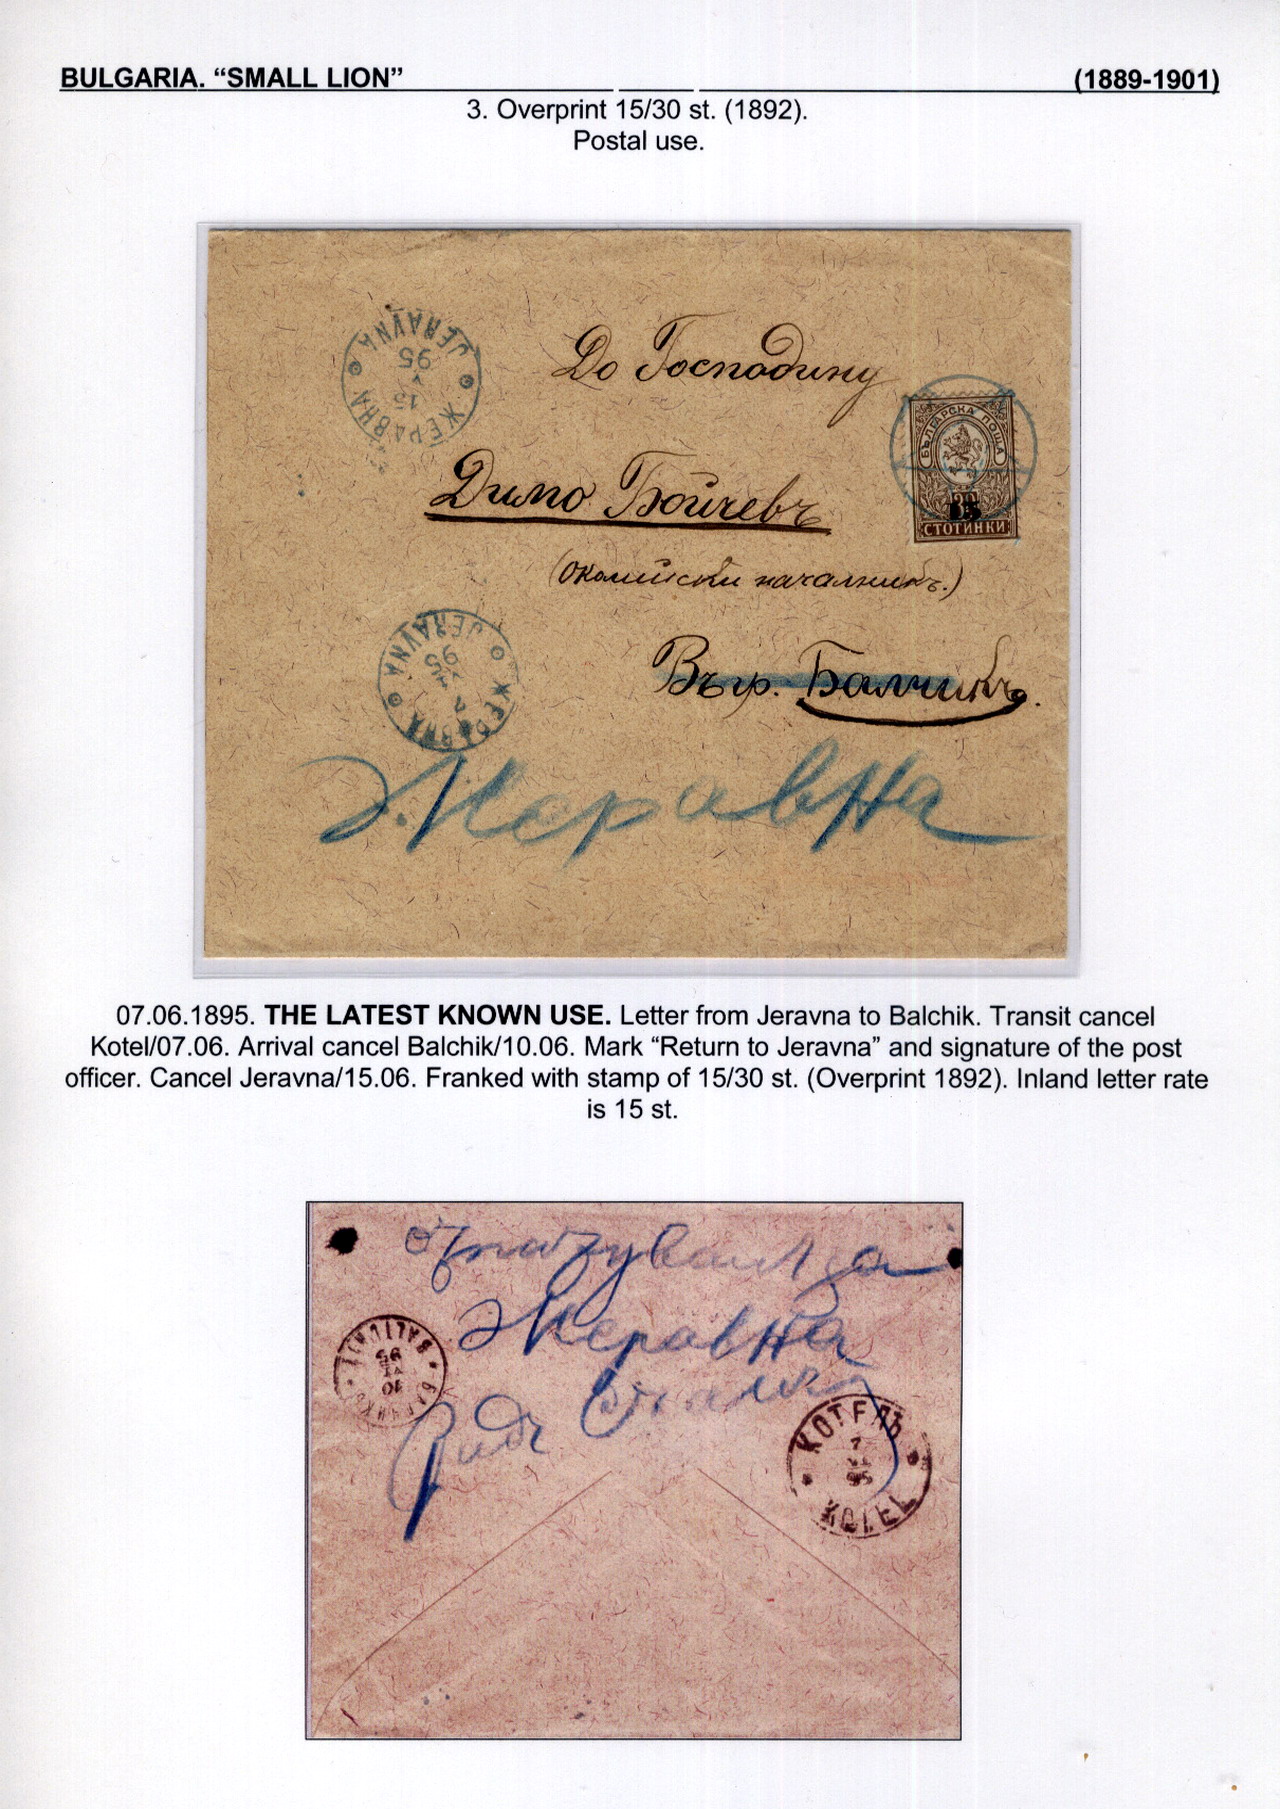 BULGARIA. “SMALL LION” (1889-1901)
3. Overprint 15/30 st. (1892).
Postal use.
JERAVNA
95
V
15
ЖЕРАВНА
До Господину
БЪЛГАРСКА ПОЩА
15
СТОТИНКИ
Димо Бойчевъ
(Околийски началникъ.)
JERAVNA
95
7
ЖЕРАВНА
Въ гр. Балчикъ.
Жеравна
07.06.1895. THE LATEST KNOWN USE. Letter from Jeravna to Balchik. Transit cancel
Kotel/07.06. Arrival cancel Balchik/10.06. Mark “Return to Jeravna” and signature of the post
officer. Cancel Jeravna/15.06. Franked with stamp of 15/30 st. (Overprint 1892). Inland letter rate
is 15 st.
за
Жеравна
10
VI
95
КОТЕЛЪ
7
VI
95
KOTEL